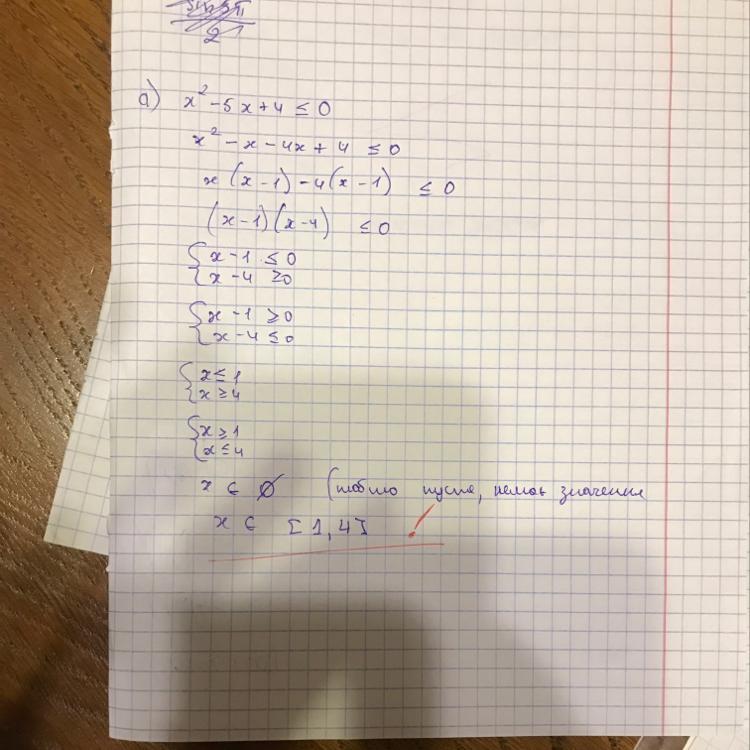 а) x² - 5x + 4 ≤ 0
x² - x - 4x + 4 ≤ 0
x (x - 1) - 4 (x - 1) ≤ 0
(x - 1) (x - 4) ≤ 0
{ x - 1 ≤ 0
x - 4 ≥ 0
{ x - 1 ≥ 0
x - 4 ≤ 0
{ x ≤ 1
x ≥ 4
{ x ≥ 1
x ≤ 4
x ∈ ∅ (тобто пусте, немає значення
x ∈ [1, 4]